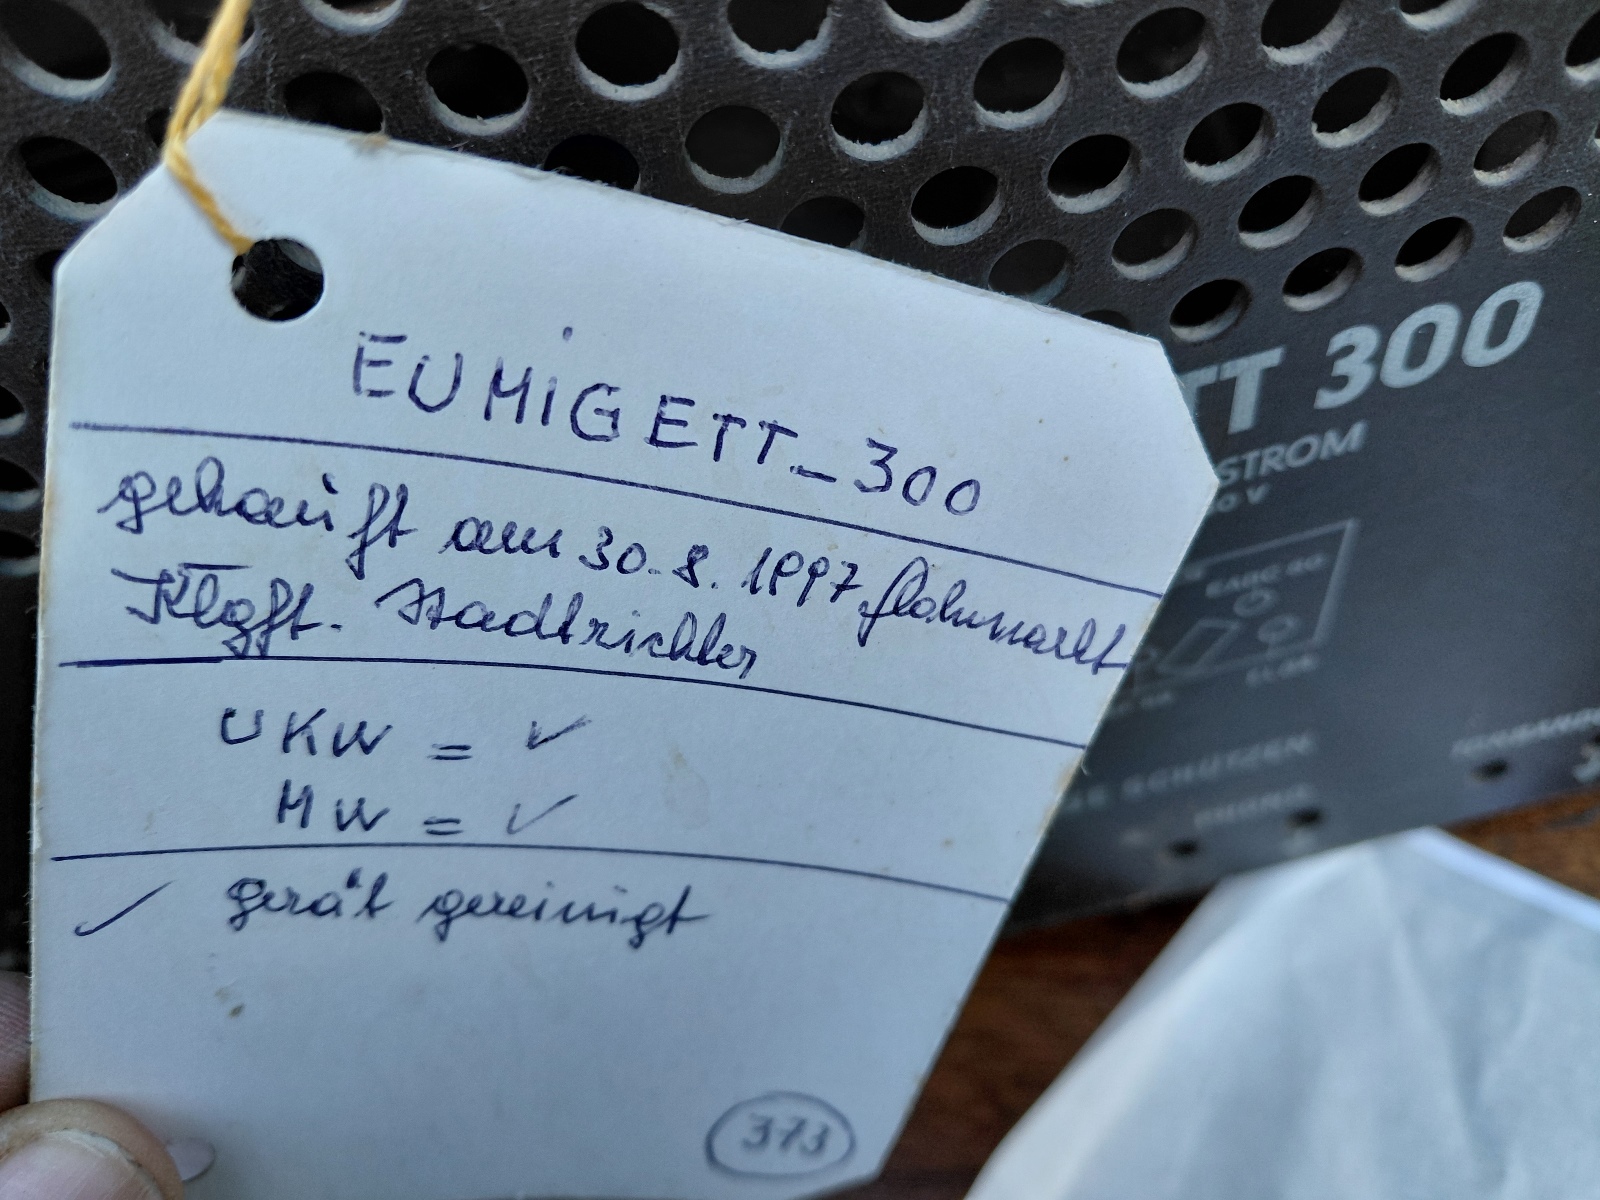 EUMIGETT-300
gekauft am 30.8.1997 flohmarkt
Klgft. Stadtrichter
UKW = ✓
MW = ✓
✓ gerät gereinigt
373
TT 300
STROM
0 V
EABC 80
SCHÜTZEN